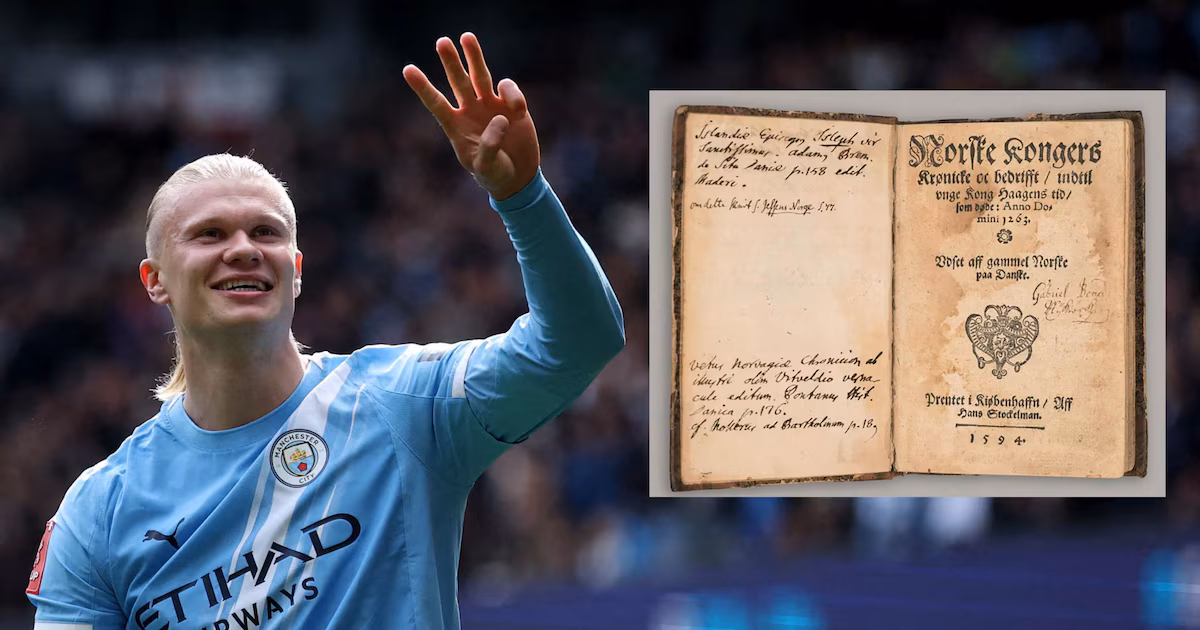 MANCHESTER
CITY
ETIHAD
AIRWAYS
Islandiæ Episcopus Isleph vir
Sanctissimus. Adam, Brem.
de Situ Daniæ p.158 edit.
Maderi.
om dette skrif S. Jessens Norge S.
Vetus Norvagiæ Chronicion ab
illustri olim Vitveldio verna-
cule editum. Pontanus Hist.
Danica p.176.
ad Bartholinum p.18
Norske Kongers
Krønicke oc bedrifft / indtil
vnge Kong Haagens tid /
som døde: Anno Do-
mini 1263.
Vdset aff gammel Norske
paa Danske.
Gabriel
Prentet i Kiøbenhaffn / Aff
Hans Stockelman.
1594.